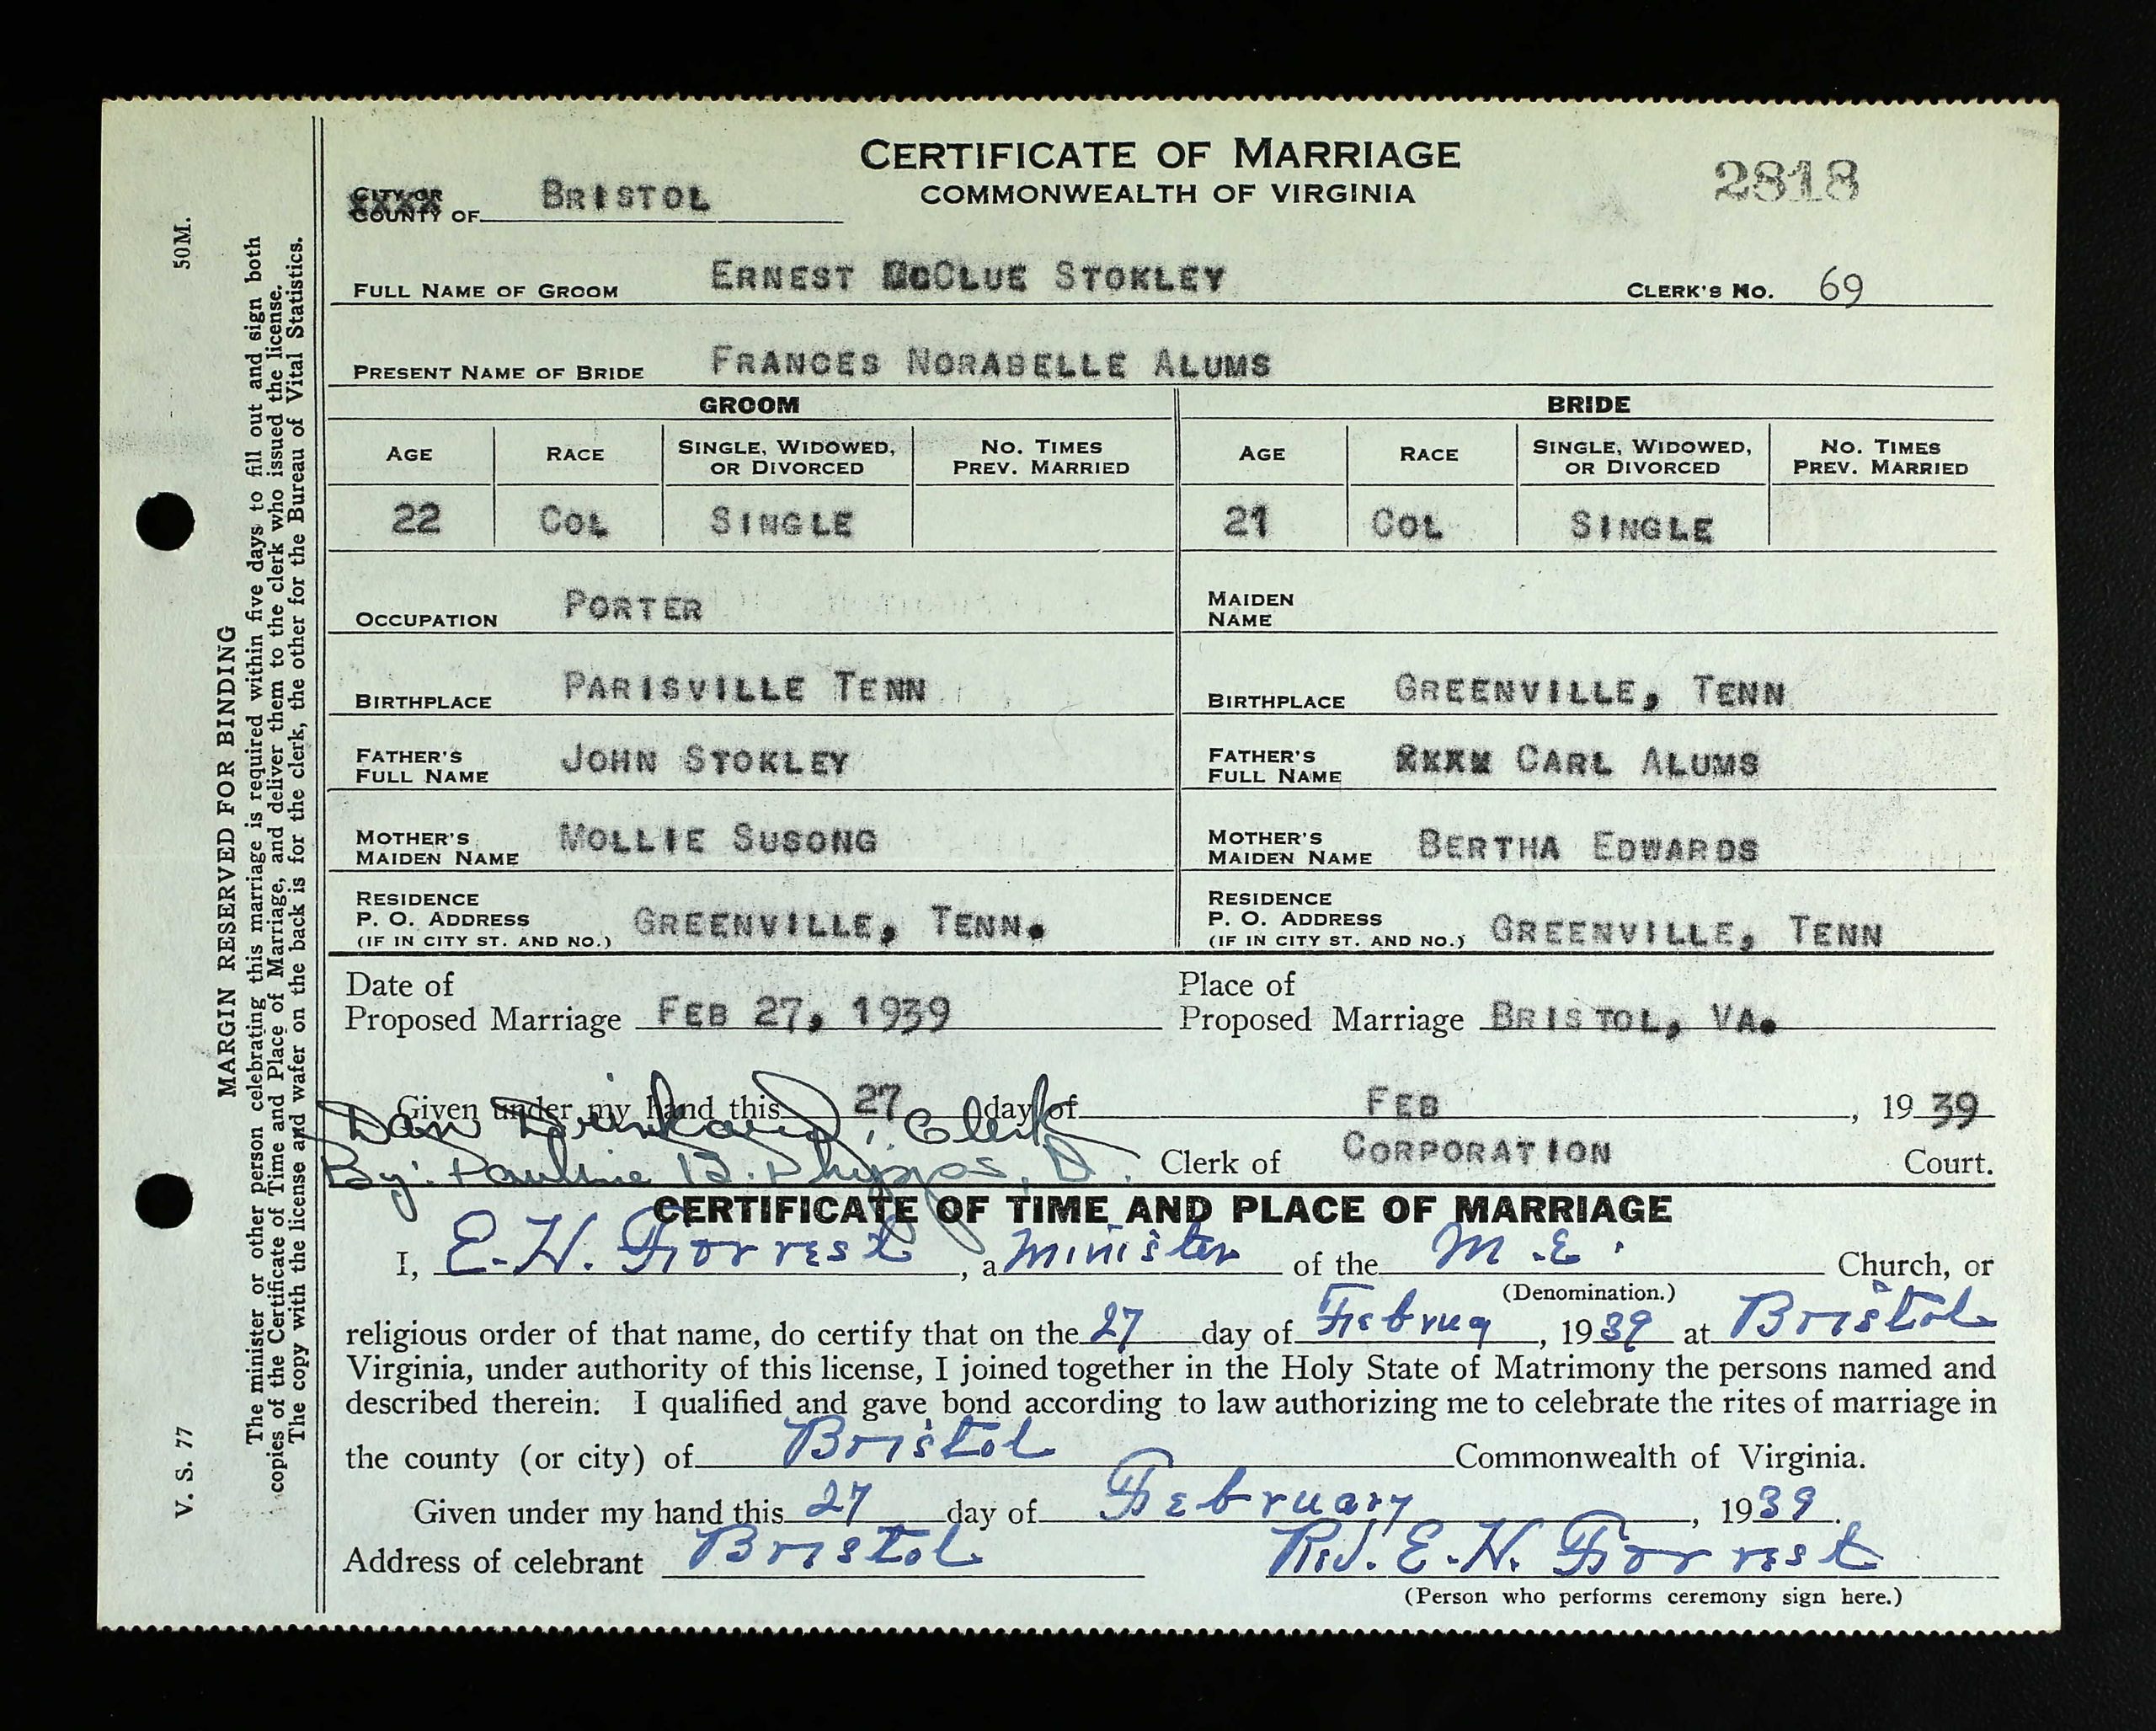 CERTIFICATE OF MARRIAGE
COMMONWEALTH OF VIRGINIA
2818
CITY OR
COUNTY OF BRISTOL
FULL NAME OF GROOM ERNEST McCLUE STOKLEY CLERK'S No. 69
PRESENT NAME OF BRIDE FRANCES NORABELLE ALUMS
GROOM BRIDE
AGE RACE SINGLE, WIDOWED, OR DIVORCED NO. TIMES PREV. MARRIED AGE RACE SINGLE, WIDOWED, OR DIVORCED NO. TIMES PREV. MARRIED
22 COL SINGLE 21 COL SINGLE
OCCUPATION PORTER MAIDEN NAME
BIRTHPLACE PARISVILLE TENN BIRTHPLACE GREENVILLE, TENN
FATHER'S FULL NAME JOHN STOKLEY FATHER'S FULL NAME CARL ALUMS
MOTHER'S MAIDEN NAME MOLLIE SUSONG MOTHER'S MAIDEN NAME BERTHA EDWARDS
RESIDENCE P. O. ADDRESS (IF IN CITY ST. AND NO.) GREENVILLE, TENN. RESIDENCE P. O. ADDRESS (IF IN CITY ST. AND NO.) GREENVILLE, TENN
Date of Proposed Marriage FEB 27, 1939 Place of Proposed Marriage BRISTOL, VA.
Given under my hand this 27 day of FEB, 1939
Dan Drinkard, Clerk
By: Pauline B. Phipps, D. Clerk of CORPORATION Court.
CERTIFICATE OF TIME AND PLACE OF MARRIAGE
I, E. H. Forrest, a minister of the M. E. Church, or
(Denomination.)
religious order of that name, do certify that on the 27 day of Februa, 1939 at Bristol
Virginia, under authority of this license, I joined together in the Holy State of Matrimony the persons named and
described therein. I qualified and gave bond according to law authorizing me to celebrate the rites of marriage in
the county (or city) of Bristol Commonwealth of Virginia.
Given under my hand this 27 day of February, 1939.
Address of celebrant Bristol Rev. E. H. Forrest
(Person who performs ceremony sign here.)
V. S. 77 50M.
MARGIN RESERVED FOR BINDING
The minister or other person celebrating this marriage is required within five days to fill out and sign both
copies of the Certificate of Time and Place of Marriage, and deliver them to the clerk who issued the license.
The copy with the license and wafer on the back is for the clerk, the other for the Bureau of Vital Statistics.